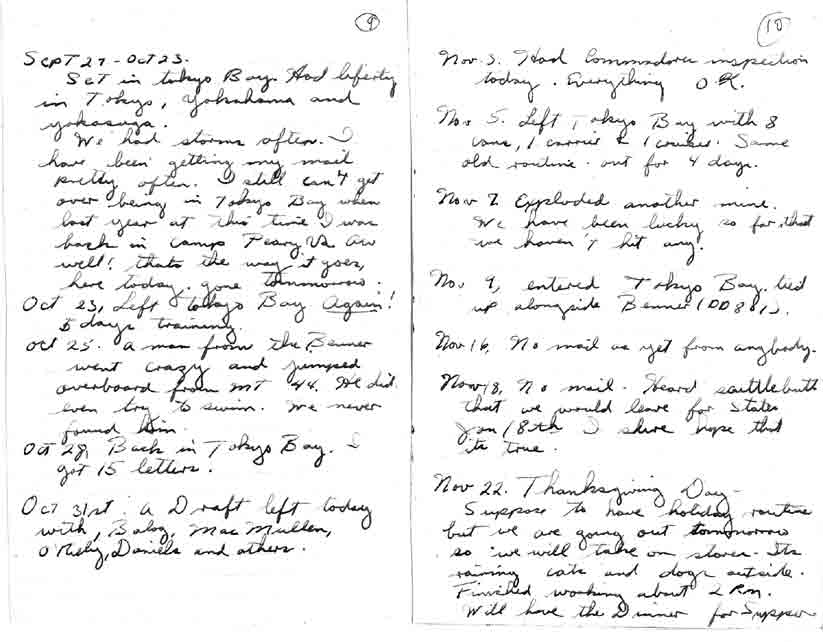 9
Sept 27 - Oct 23.
Set in tokyo Bay. Had liferty
in Tokyo, Yokahama and
yokasuga.
We had storms often. I
have been getting my mail
pretty often. I still can't get
over being in Tokyo Bay when
last year at this time I was
back in Camp Peary Va. Aw
well! thats the way it goes,
here today. gone tommorrow.
Oct 23, Left tokyo Bay Again!
5 days training.
Oct 25. A man from the Benner
went crazy and jumped
overboard from mt 44. He did
even try to swim. We never
found him.
Oct 28, Back in Tokyo Bay. I
got 15 letters.
Oct 31st. a Draft left today
with, Balog, Mac Mullen,
Daniels and others.
10
Nov. 3. Had Commadores inspection
today. Everything OK.
Nov 5. Left Tokyo Bay with 8
cans, 1 carrier & 1 cruiser. Same
old routine. out for 4 days.
Nov 7. Exploded another mine.
We have been lucky so far, that
we haven't hit any!
Nov 9, entered Tokyo Bay. tied
up alongside Benner (DD807).
Nov 16, No mail as yet from anybody.
Nov 18, No mail. Heard scuttlebutt
that we would leave for States
Jan 18th I shure hope that
its true.
Nov 22. Thanksgiving Day -
Suppose to have holiday routine
but we are going out tommorrow
so we will take on stores. Its
raining cats and dogs outside.
Finished working about 2 P.M.
Will have the Dinner for Supper